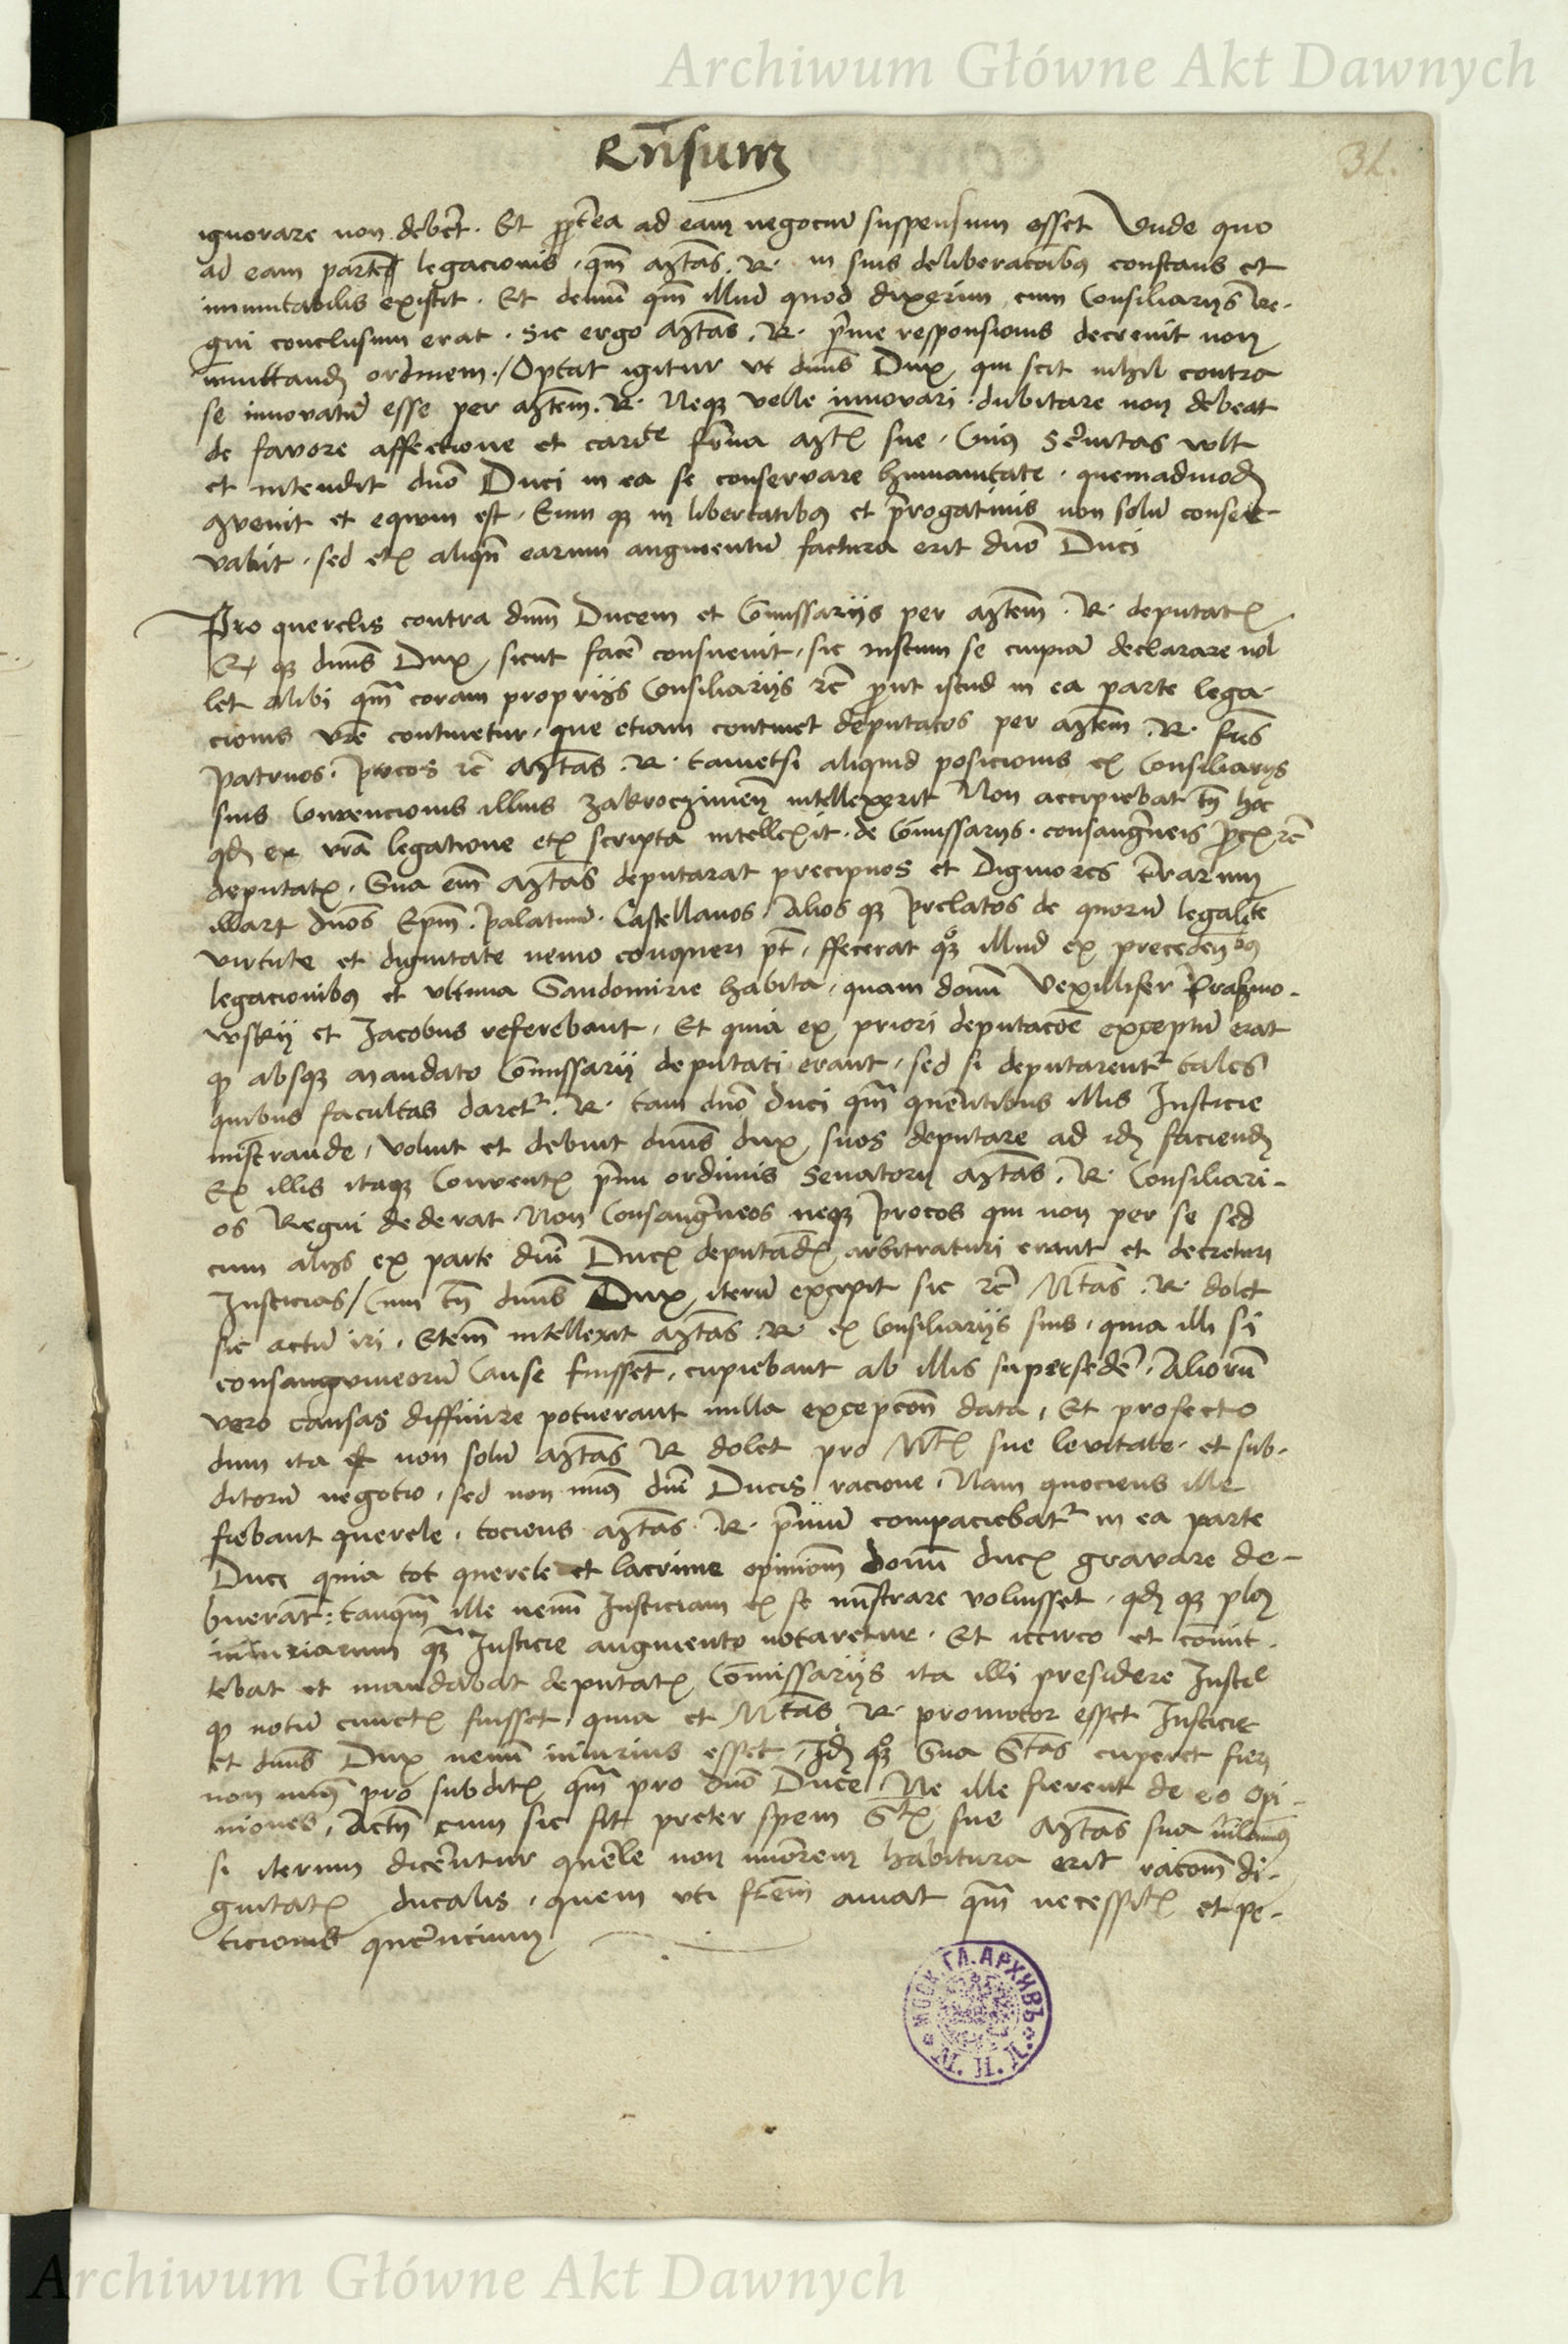 Archiwum Główne Akt Dawnych
Rn̄sum
31.
ignorare non debet̄. Et ꝓpt̄ea ad eam negociū suspensum esset Vnde quo
ad eam partē legacionis, qm̄ Mtās. R. in suis deliberac̄oibꝯ constans et
inmutabilis existit. Et demū qm̄ illud quod dixerim cum Consiliarijs Re-
gni conclusum erat. Sic ergo Mtās. R. prīme responsionis decrevit non
mutand ordinem./ Optat igitur vt dnūs Dux qui scit nihil contra
se innovatū esse per Mtēm. R. Neqꝫ velle innovari. dubitare non debeat
de favore affectione et carite frn̄a Mtꝭ sue, Cuiꝯ Ser̄nitas vult
et intendit dnō Duci in ea se conservare humanitate. quemadmod
ꝯvenit et equum est. Eum qꝫ in libertatibꝯ et prērogativis non solū conser-
vabit. sed etꝭ aliqn̄ earum augmentū factura erit dnō Duci
Pro querelis contra dnm̄ Ducem et Com̄issarijs per Mtēm. R. deputatꝭ
Et qꝫ dnūs Dux, sicut facē consuevit, sic iustum se cupiā declarare vol
let alibi qm̄ coram proprijs Consiliarijs rc̄ ꝓut istud in ea parte lega-
cionis vrē continetur, que etiam continet deputatos per Mtēm. R. frēs
patruos. procos rc̄ Mtās. R. tametsi aliquid posicionis ex Consiliarijs
suis Convencionis illius Zakroczimen̄ intellexerit Non accipiebat tn̄ hoc
qd ex vrā legatione etꝭ scripta intellexit. de Com̄issarijs. consangvīneis
deputatꝭ. Sua em̄ Mtās deputarat precipuos et Digniores ter̄rarum
illarꝭ dnōs Epm̄. palatinū. Castellanos. Alios qꝫ prelatos de quorū legalite
virtute et dignitate nemo conqueri pt̄, ffecerat qꝫ illud ex precedenꝯ
legacionibꝯ et vltima Sandomirie habita, quam domī Vexillifer Prazmo-
wskij et Jacobus referebant, Et quia ex priori deputac̄oē exceptū erat
qꝫ absqꝫ mandato Com̄issarij deputati erant, sed si deputarent tales
quibus facultas daret. R. tam dnō duci qm̄ querentibus illis Justicie
mīstrande, voluit et debuit dnūs dux suos deputare ad id faciend
Ex illis itaqꝫ Conventꝭ prīmi ordinis Senatorꝭ Mtās. R. Consiliari-
os Regni dederat Non Consangvīneos neqꝫ procos qui non per se sed
cum alijs ex parte dnī Ducꝭ deputādꝭ arbitraturi erant et decreturi
Justicias/ Cum tn̄ dnūs Dux, iterū excipit sic rc̄ Mtās. R. dolet
sic actū iri, Etem̄ intellexit Mtās. R ex Consiliarijs suis, quia illi si
consangvineorū Cause fuisset̄, cupiebant ab illis supersedē. Aliorū
vero causas diffinire potuerant nulla excepcōn data, Et profecto
dum ita et non solū Mtās R dolet pro Mtꝭ sue levitate. et sub-
ditorū negotio, sed non minꝯ dnī Ducis racione, Nam quociens ille
fiebant querele, tociens Mtās. R. prīmū compaciebat in ea parte
Duci quia tot querele et lacrime opinionm̄ domī ducꝭ gravare de-
buerant: tanqm̄ ille nemī Justiciam ex se mīstrare voluisset, qd qꝫ plꝯ
iniuriarum qm̄ Justicie augmento notaretur. Et iccirco et com̄it-
tebat et mandabat deputatꝭ Com̄issarijs ita illi presidere Justicie
qꝫ notū cunctꝭ fuisset, quia et Mtās. R. promotor esset Justicie
et dnūs Dux nemī iniurius esset, Id qꝫ Sua Stās cuperet fieri
non minꝯ pro subditꝭ qm̄ pro dnō Duce, Ne ille fierent de eo opi-
niones, Actꝭ cum sic sit preter spem Stꝭ sue Mtās sua
si iterum dicentur querēle non minorem habitura erit racionm̄ di-
gnitatꝭ ducalis, quem vti frēm amat qm̄ necessitꝭ et pe-
ticionis querencium
МОСК. ГЛ. АРХИВЪ
М. И. Д.
Archiwum Główne Akt Dawnych